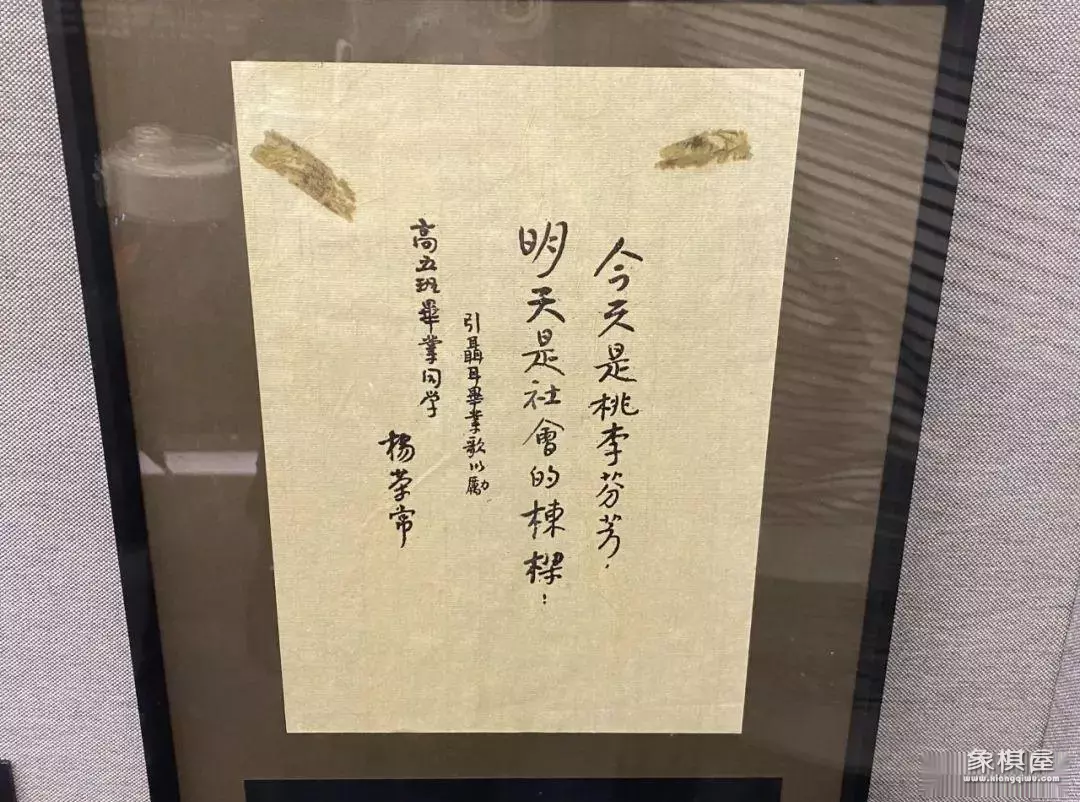 今天是桃李芬芳，
明天是社會的棟樑！
引聶耳畢業歌以勵
高五班畢業同学
楊荣常
象棋屋
www.xiangqiwu.com